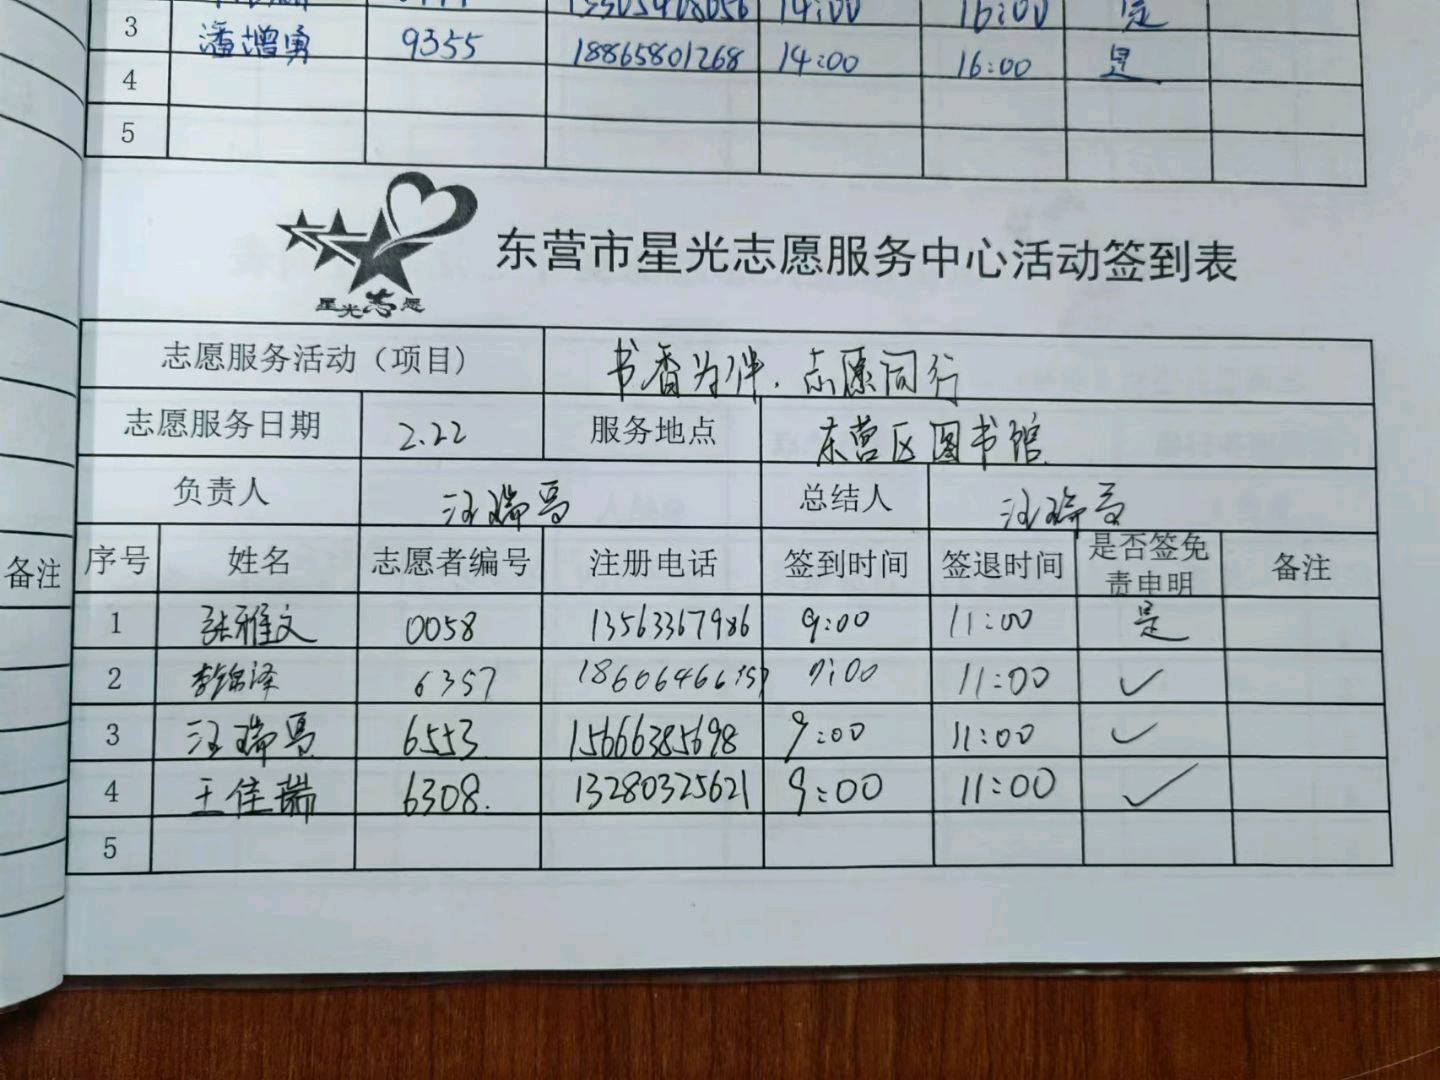 3 潘增勇 9355 18865801268 14:00 16:00 是
4
5
星光志愿
东营市星光志愿服务中心活动签到表
志愿服务活动（项目) 书香为伴.志愿同行
志愿服务日期 2.22 服务地点 东营区图书馆
负责人 汪瑞 总结人 汪瑞
备注
序号 姓名 志愿者编号 注册电话 签到时间 签退时间 是否签免责申明 备注
1 张雅文 0058 13563367986 9:00 11:00 是
2 李锦泽 6357 18606466 11:00 ✓
3 汪瑞 6553 15666385698 9:00 11:00 ✓
4 王佳瑞 6308. 13280325621 9:00 11:00 ✓
5